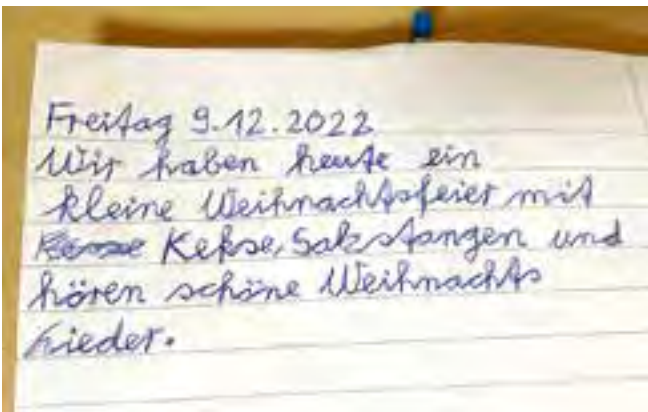 Freitag 9.12.2022
Wir haben heute ein
kleine Weihnachtsfeier mit
Kekse, Salzstangen und
hören schöne Weihnachts
Lieder.